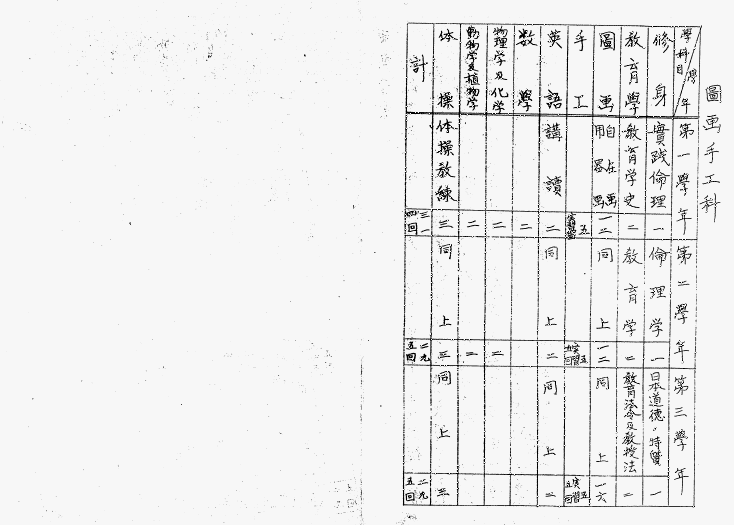 圖画手工科
學年
學科目
第一學年
第二學年
第三學年
修身
實践倫理
一
倫理学
一
日本道德ノ特質
一
教育學
教育学史
二
教育学
二
教育法令及教授法
二
圖画
自在画
用器画
一二
同上
一二
同上
一六
手工
五
実習五回
五
実習五回
五
英語
講讀
二
同上
二
同上
二
数學
二
物理学及化学
二
二
動物学及植物学
二
二
体操
体操教練
三
同上
三
同上
三
計
三一
四回
二九
五回
二九
五回